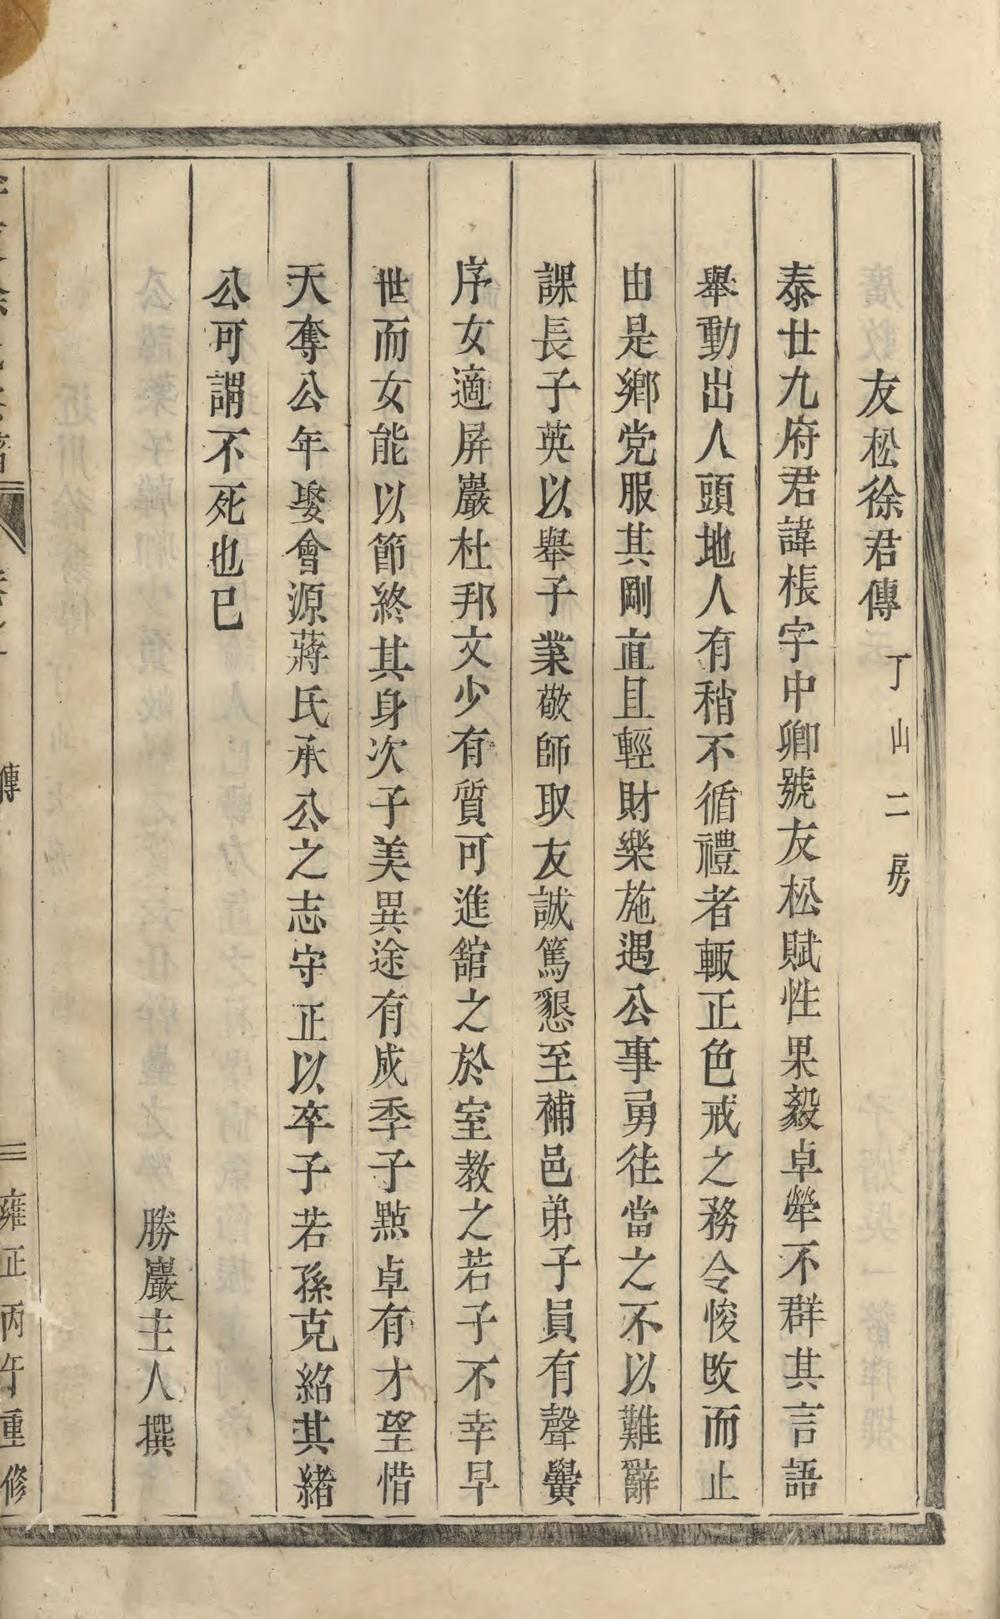 友松徐君傳 丁山二房
泰廿九府君諱棖字中卿號友松賦性果毅卓犖不群其言語
舉動出人頭地人有稍不循禮者輙正色戒之務令悛改而止
由是鄉党服其剛直且輕財樂施遇公事勇往當之不以難辭
課長子英以舉子業敬師取友誠篤懇至補邑弟子員有聲黌
序女適屏巖杜邦文少有質可進舘之於室教之若子不幸早
世而女能以節終其身次子美異途有成季子點卓有才望惜
天奪公年娶會源蔣氏承公之志守正以卒子若孫克紹其緒
公可謂不死也已
勝巖主人撰
傳 雍正丙午重修